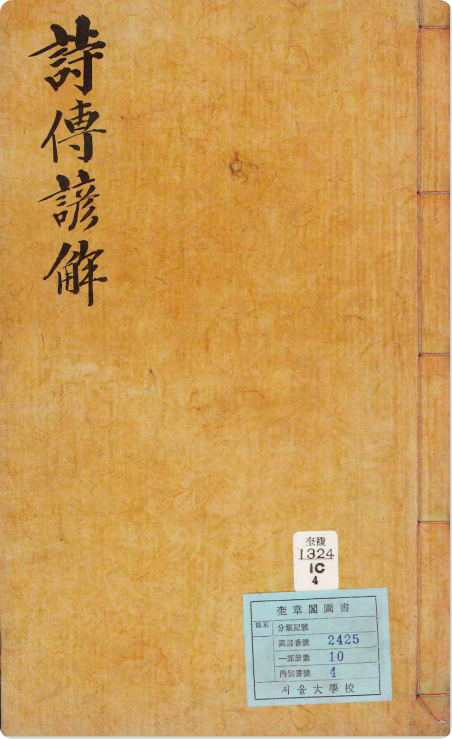 詩傳諺解
奎複
1324
1C
4
奎章閣圖書
分類記號
圖書番號 2425
一部冊數 10
內別番號 4
서울大學校